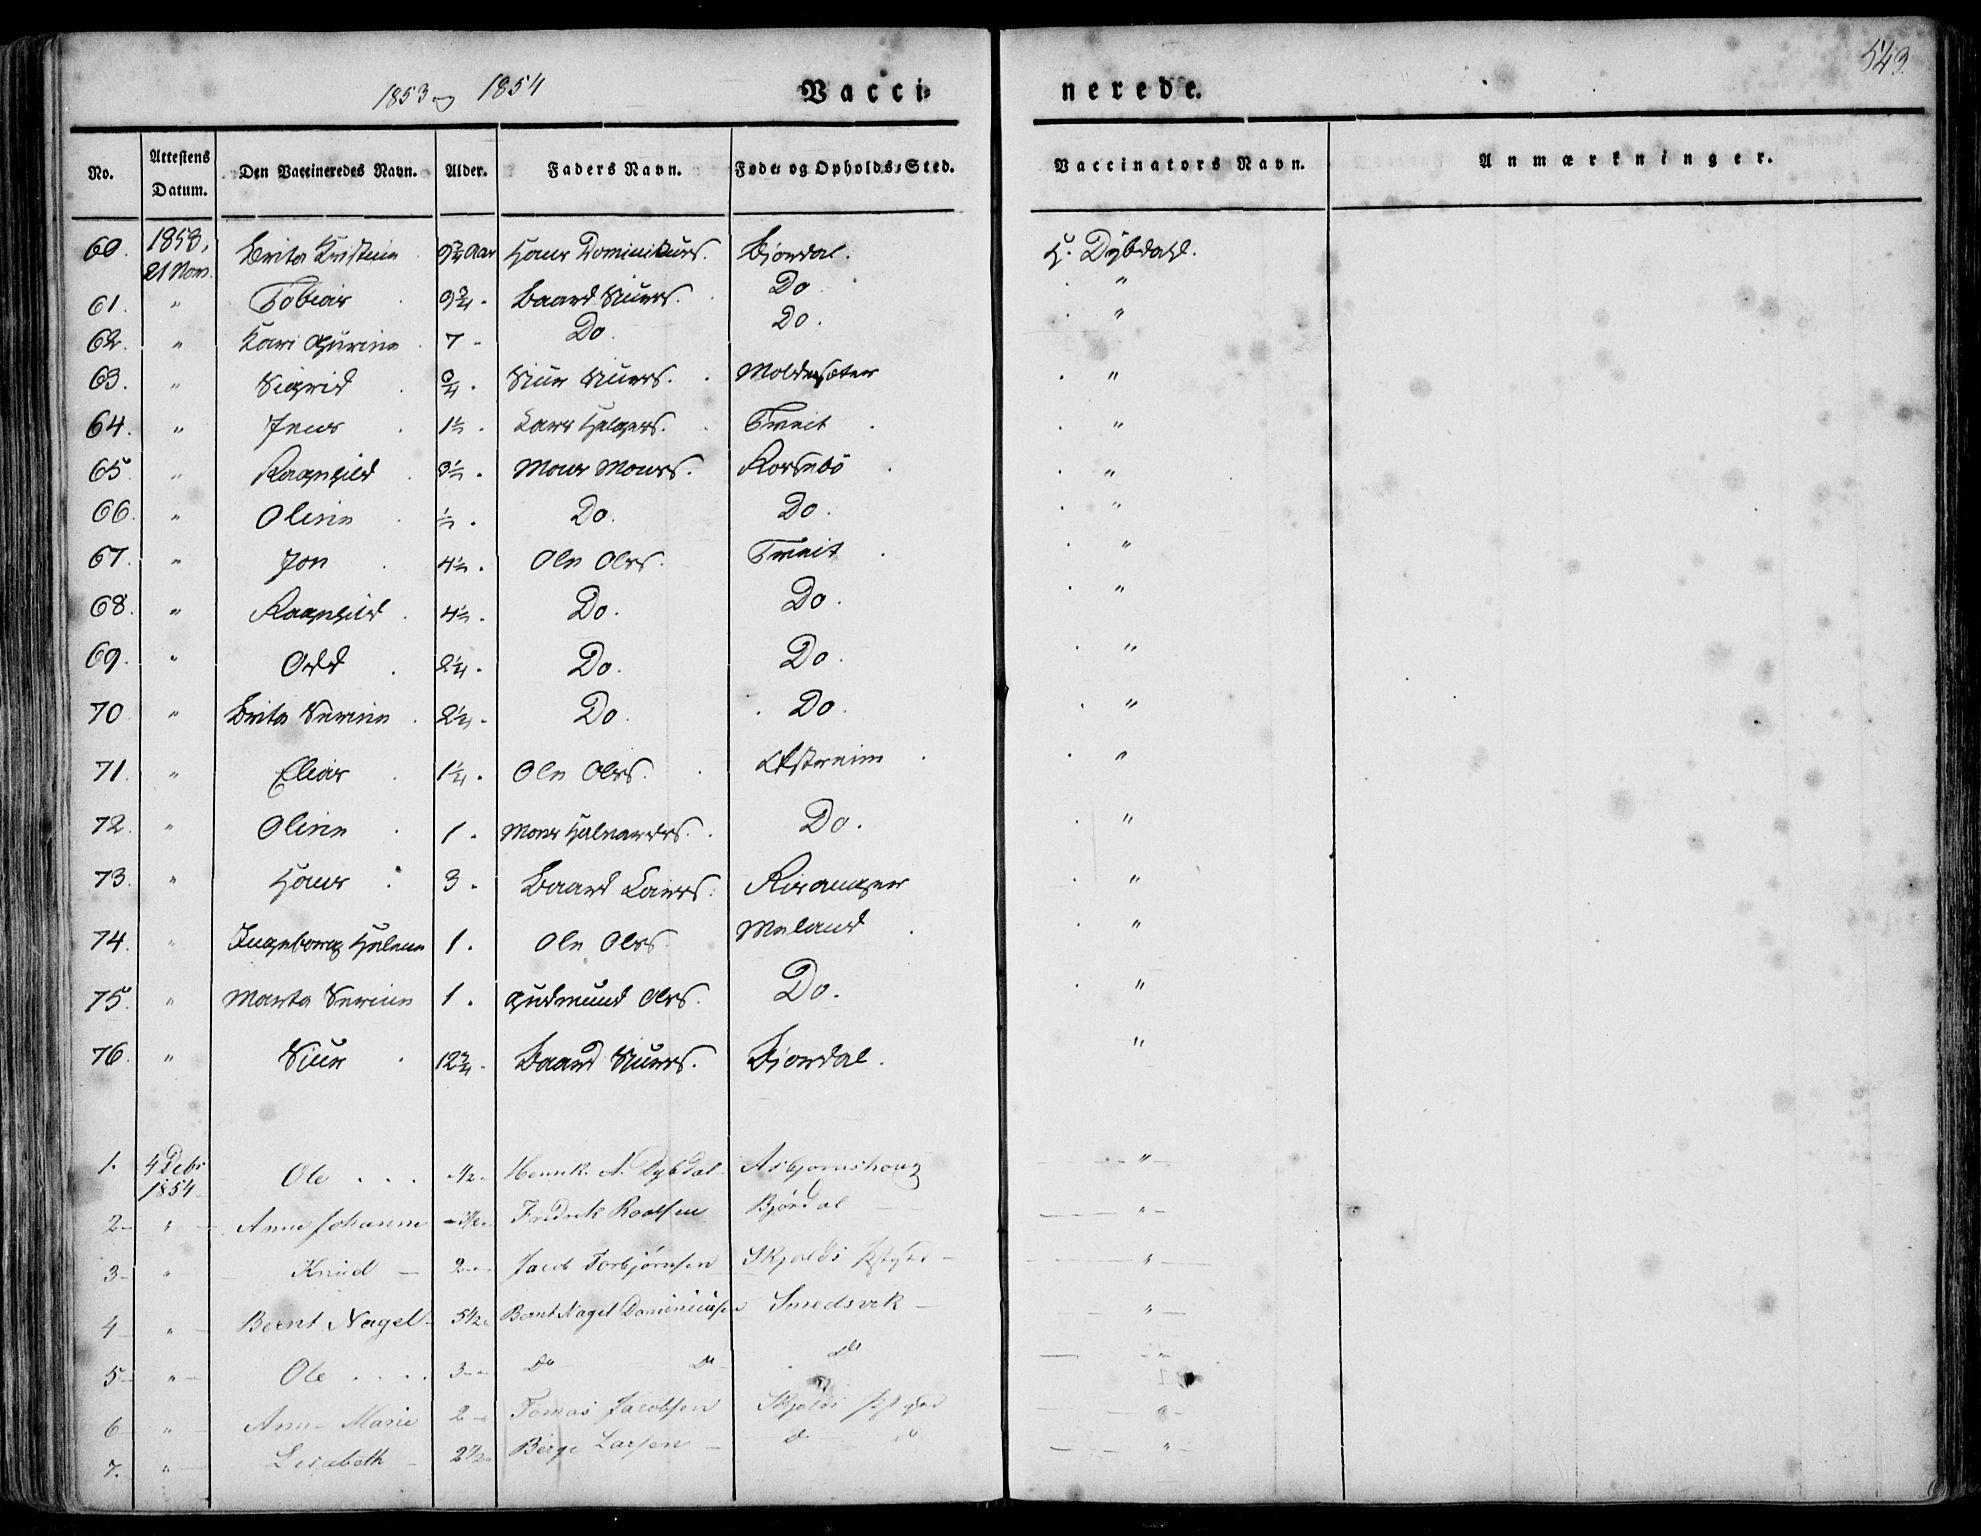 543.
1853 og 1854 Vacci- nerede.
No. Attestens Datum. Den Vaccineredes Navn. Alder. Faders Navn. Føde- og Opholds-Sted. Vaccinators Navn. Anmærkninger.
60. 1853, 21 Novr. Brita Kristina 9 3/4 Aar Hans Dominikuss. Bjordal. H. Dybdahl.
61. " Tobias 9 3/4. Baard Siurs. Do "
62. " Kari Gurina 7 Do. Do. "
63. " Sigrid 3/4. Siur Siurs. Moldesæter "
64. " Jens 1 1/2. Lars Helges. Tveit "
65. " Ragnhild 3 1/2. Mons Monss. Korsebø "
66. " Oline 1/2. Do. Do. "
67. " Jon 4 1/2. Ole Ols. Tveit "
68. " Ragnhild 4 1/2. Do. Do. "
69. " Odd 2 1/4. Do. Do. "
70 " Brita Serine 2 1/4. Do. Do. "
71. " Elias 1 1/4. Ole Ols. "
72. " Oline 1. Mons Halvards. Do. "
73. " Hans 3. Baard Larss. Risanger "
74. " Ingeborg Helena 1. Ole Ols. Meland "
75. " Marta Serine 1. Gudmund Ols. Do. "
76. " Siur 12 3/4. Baard Siurs. Bjordal. "
1. 4 Debr 1854 Ole . . . 1/2 Henrik N. Dybdal Asbjørnshoug "
2 " Anne Johanne Fredrik Roalsen Bjørdal "
3 " Knud 2 Jacob Torbjørnsen Skjolds "
4 " Bernt Nagel 5 1/2 Bernt Nagel Dominicusen Smedsvik "
5 " Ole . . . . 3 Do Do Do "
6 " Anne Marie 2 Tomas Jacobsen Skjolds "
7. " Lisabeth 2 1/2 Børge Larsen Do Do "